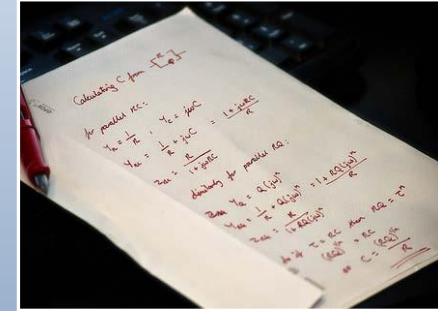 Calculating C from
for parallel RC:
Y_R = 1/R, Y_C = jωC
Y_RC = 1/R + jωC = (1 + jωRC)/R
Z_RC = R/(1 + jωRC)
similarly for parallel RQ:
Y_Q = Q(jω)^n
Y_RQ = 1/R + Q(jω)^n = (1 + RQ(jω)^n)/R
Z_RQ = R/(1 + RQ(jω)^n)
so if τ = RC then RQ = τ^n
(RQ)^1/n = RC
so C = (RQ)^1/n / R